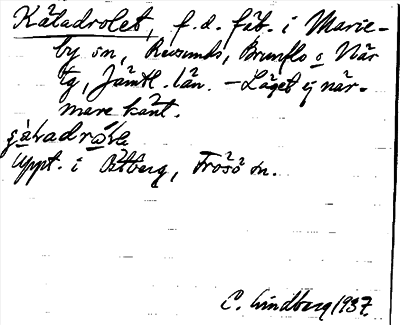 Kätadrolet, f. d. fäb. i Marie-
by sn, Revsunds, Brunflo o När
tg, Jämtl. län. – Läget ej när-
mare känt.
Uppt. i Östberg, Frösö sn.
C. Lindberg 1937.